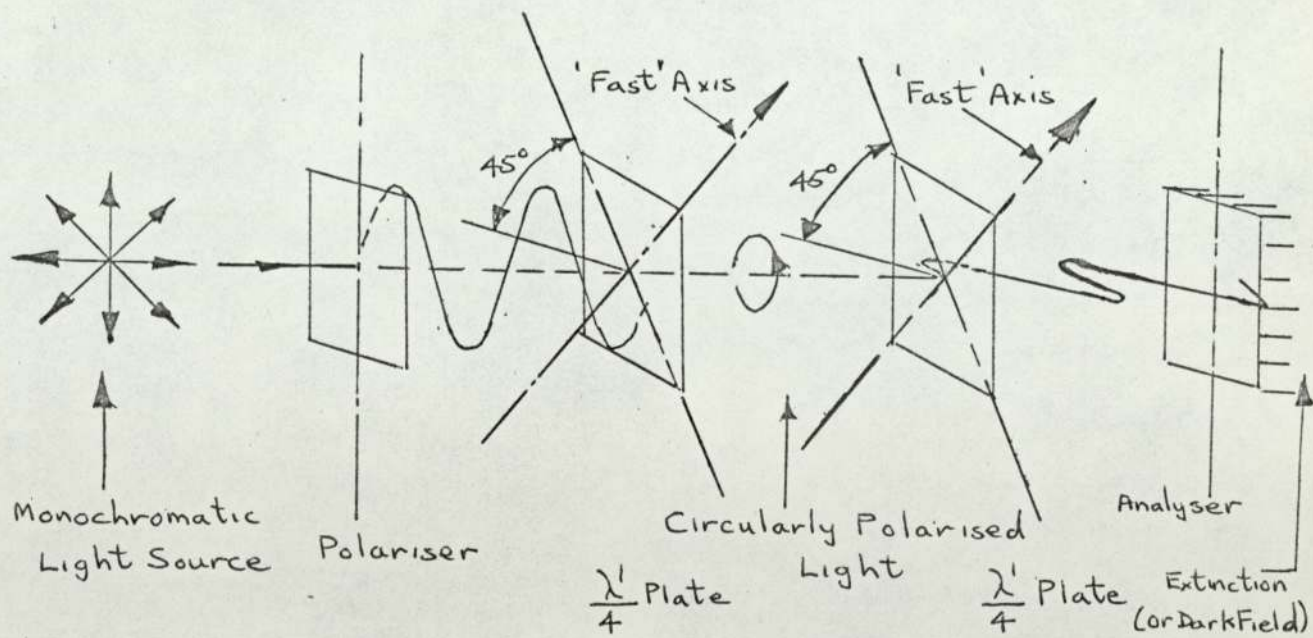 'Fast' Axis
'Fast' Axis
45°
45°
Monochromatic
Light Source
Polariser
λ'/4 Plate
Circularly Polarised
Light
λ'/4 Plate
Analyser
Extinction
(or Dark Field)